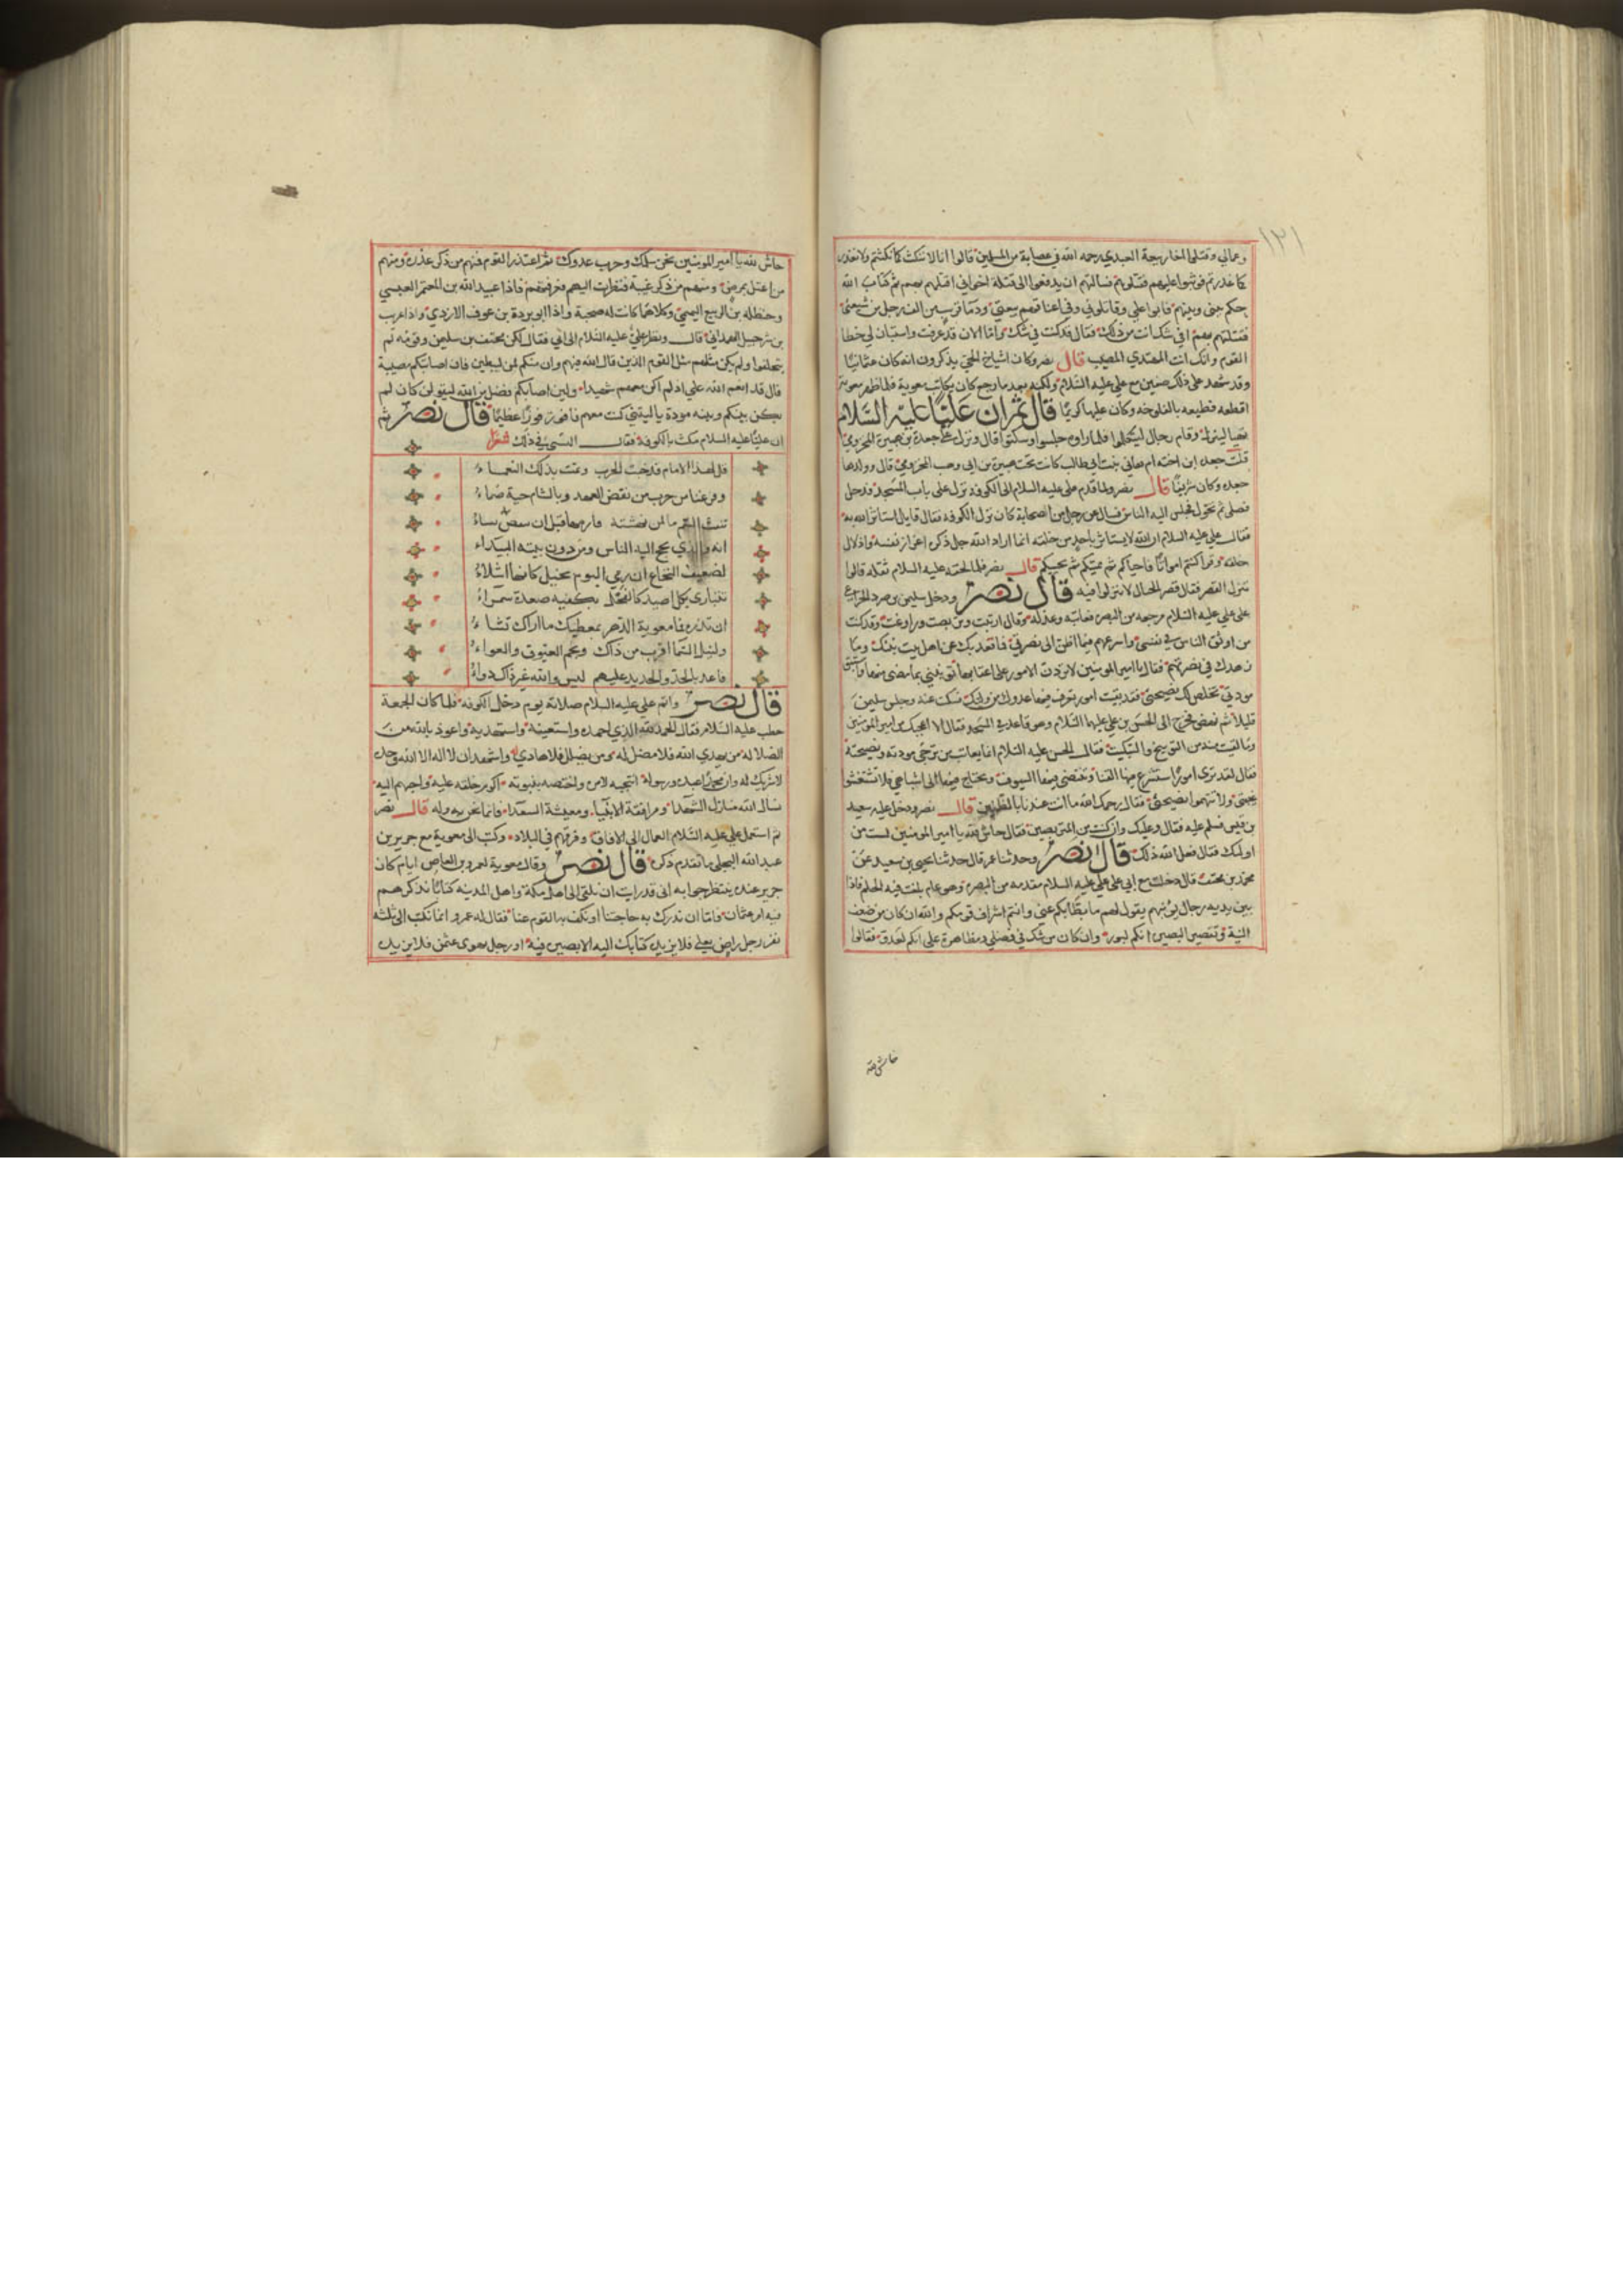 ١٢١
وعمالي وقتلوا اخا ربيعة العبدي رحمه الله في عصابة من المسلمين قالوا انا لا ننكث كما نكثتم ولا نغدر
كما غدرتم فوثبوا عليهم فقتلوهم فسالتهم ان يدفعوا الى قتلة اخواني اقتلهم بهم ثم كتاب الله
حكم بيني وبينهم فابوا علي وقاتلوني وفي اعناقهم بيعتي ودما قريب من الف رجل من شيعتي
فقتلتهم بهم افي شك انت من ذلك فقال قد كنت في شك واما الان قد عرفت واستبان لي خطا
القوم وانك انت المهتدي المصيب قال نصر وكان اشياخ الحي يذكرون انه كان عثمانيا
وقد شهد على ذلك صفين مع علي عليه السلام ولكنه بعد ما رجع كان يكاتب معوية فلما ظهر معوية
اقطعه قطيعه بالفلوجه وكان عليها كريما قال ثم ان عليا عليه السلام
تهيا لينزل وقام رجال ليتكلموا فلما راوه جلسوا وسكتوا قال ونزل على جعدة بن هبيرة المخزومي
قلت جعده ابن اخته ام هاني بنت ابي طالب كانت تحت هبيرة بن ابي وهب المخزومي قال وولدها
جعده وكان شريفا قال نصر ولما قدم علي عليه السلام الى الكوفه نزل على باب المسجد فدخل
فصلى ثم تحول فجلس اليه الناس فسال عن رجل من اصحابه كان نزل الكوفه فقال قايل استاثر الله به
فقال علي عليه السلام ان الله لا يستاثر باحد من خلقه انما اراد الله جل ذكره اعزاز نفسه واذلال
خلقه وقرا كنتم امواتا فاحياكم ثم يميتكم ثم يحييكم قال نصر فلما لحقه عليه السلام ثقله قالوا
تنزل القصر فقال قصر الخبال لا تنزلوا فيه قال نصر ودخل سليمن بن صرد الخزاعي
على علي عليه السلام مرجعه من البصره فعاتبه وعذله وقال ارتبت وتربصت وراوغت وقد كنت
من اوثق الناس في نفسي واسرعهم فيما اظن الى نصرتي فما قعد بك عن اهل بيت نبيك وما
زهدك في نصرتهم فقال يا امير المومنين لا تردن الامور على اعقابها ولا تؤنبني بما مضى منها واستبق
مودتي تخلص لك نصيحتي فقد بقيت امور تعرف فيها عدوك من وليك فسكت عنه وجلس سليمن
قليلا ثم نهض فخرج الى الحسن بن علي عليهما السلام وهو قاعد في المسجد فقال الا اعجبك من امير المومنين
وما لقيت منه من التوبيخ والتبكيت فقال الحسن عليه السلام انما يعاتب من ترجى مودته ونصيحته
فقال لقد ترى امورا ستشرع فيها القنا وتنتضي فيها السيوف ويحتاج فيها الى اشباهي فلا تستغشوا
غيبتي ولا تتهموا نصيحتي فقال رحمك الله ما انت عندنا بالظنين قال نصر ودخل عليه سعيد
بن قيس فسلم عليه فقال وعليك وان كنت من المتربصين فقال حاش لله يا امير المومنين لست من
اولئك فقال فعل الله ذلك قال نصر وحدثنا عمر قال حدثنا يحيى بن سعيد عن
محمد بن مخنف قال دخلت مع ابي على علي عليه السلام مقدمه من البصره وهو عام بلغت فيه الحلم فاذا
بين يديه رجال يونبهم يقول لهم ما بطا بكم عني وانتم اشراف قومكم والله ان كان من ضعف
النية وتقصير البصيرة انكم لبور وان كان من شك في فضلي ومظاهرة علي انكم لعدو فقالوا
حاش لله
حاش لله يا امير المومنين نحن سلمك وحرب عدوك ثم اعتذر القوم فمنهم من ذكر عذره ومنهم
من اعتل بمرض ومنهم من ذكر غيبة فنظرت اليهم فعرفتهم فاذا عبيد الله بن المعتم العبسي
وحنظله بن الربيع التميمي وكلاهما كانت له صحبة واذا ابو بردة بن عوف الازدي واذا غريب
بن شرحبيل الهمداني قال ونظر علي عليه السلام الى ابي فقال لكن مخنف بن سليمن وقومه لم
يتخلفوا ولم يكن مثلهم مثل القوم الذين قال الله فيهم وان منكم لمن ليبطين فان اصابتكم مصيبة
قال قد انعم الله علي اذ لم اكن معهم شهيدا ولين اصابكم فضل من الله ليقولن كان لم
يكن بينكم وبينه مودة يا ليتني كنت معهم فافوز فوزا عظيما قال نصر ثم
ان عليا عليه السلام مكث بالكوفة فقال الشني في ذلك شعرا
قل لهذا الامام قد خبت الحرب وتمت بذلك النعماء
وفرغنا من حرب من نقض العهد وبالشام حية صماء
تنفث السم ما لمن نهشته فارمها قبل ان تعض شفاء
انه والذي يحج اليه الناس ومن دون بيته البيداء
لضعيف النخاع ان رمي اليوم بخيل كانها اشلاء
تتبارى بكل اصيد كالفحل بكفيه صعدة سمراء
ان تذره فما معوية الدهر بمعطيك ما اراك تشاء
ولنيل السما اقرب من ذاك ونجم العيوق والعواء
فاعد بالحد والحديد عليهم ليس والله غير ذاك دواء
قال نصر واتم علي عليه السلام صلاته يوم دخل الكوفه فلما كان الجمعة
خطب عليه السلام فقال الحمد لله الذي احمده واستعينه واستهديه واعوذ بالله من
الضلاله من يهدي الله فلا مضل له ومن يضلل فلا هادي له واشهد ان لا اله الا الله وحده
لا شريك له وان محمدا عبده ورسوله انتجبه لامره واختصه بنبوته اكرم خلقه عليه واحبهم اليه
نسال الله منازل الشهدا ومرافقة الانبيا ومعيشة السعدا فانما نحن به وله قال نصر
ثم استعمل علي عليه السلام العمال الى الافاق وفرقهم في البلاد وكتب الى معوية مع جرير بن
عبد الله البجلي ما تقدم ذكره قال نصر وقال معوية لعمرو بن العاص ايام كان
جرير عنده ينتظر جوابه انني قد رايت ان نلقي الى اهل مكة واهل المدينه كتابا نذكر لهم
فيه امر عثمان فاما ان ندرك به حاجتنا او نكف به القوم عنا فقال له عمرو انما نكتب الى ثلثة
نفر رجل راض بعلي فلا يزيده كتابك اليه الا بصيره فيه او رجل يهوى عثمن فلا يزيده